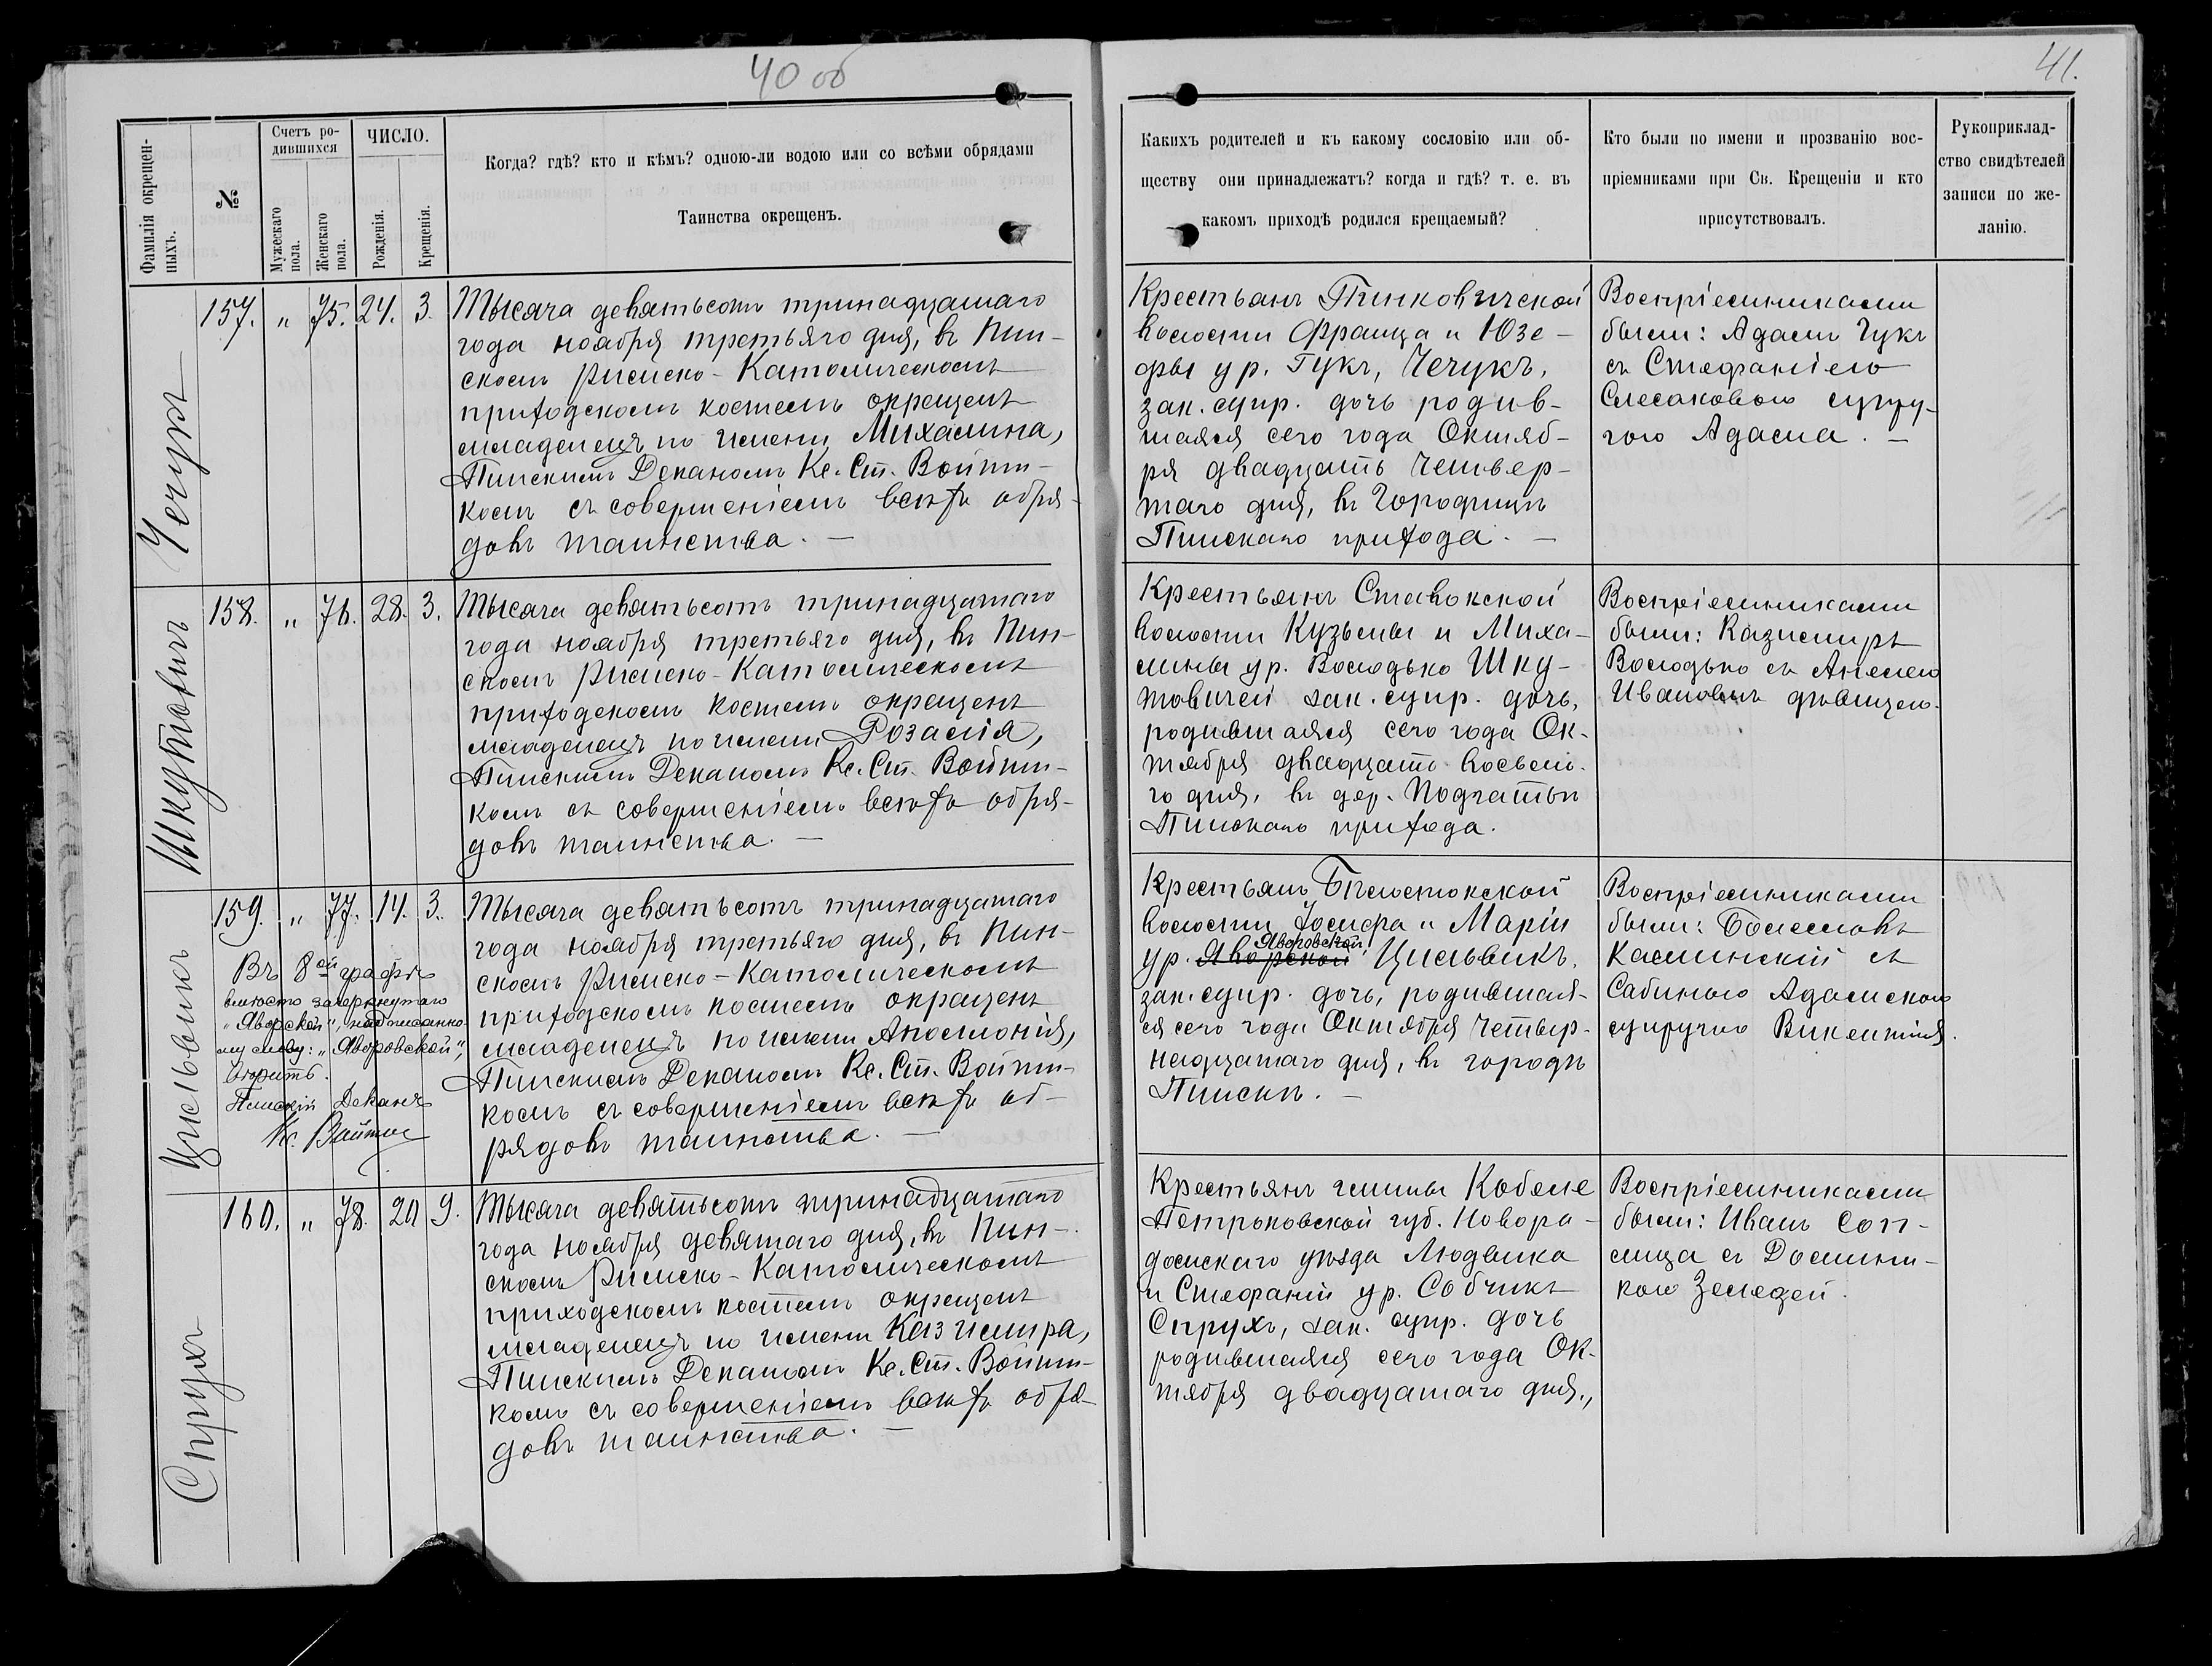 40 об
41.
Фамилія окрещен-
ныхъ.
№
Счетъ ро-
дившихся
Мужескаго
пола.
Женскаго
пола.
ЧИСЛО.
Рожденія.
Крещенія.
Когда? гдѣ? кто и кѣмъ? одною-ли водою или со всѣми обрядами
Таинства окрещенъ.
Какихъ родителей и къ какому сословію или об-
ществу они принадлежатъ? когда и гдѣ? т. е. въ
какомъ приходѣ родился крещаемый?
Кто были по имени и прозванію вос-
пріемниками при Св. Крещеніи и кто
присутствовалъ.
Рукоприклад-
ство свидѣтелей
записи по же-
ланію.
Чечукъ
157. " 75. 24. 3.
Тысяча девятьсотъ тринадцатаго
года ноября третьяго дня, въ Пин-
скомъ Римско-Католическомъ
приходскомъ костелѣ окрещенъ
младенецъ по имени Михалина,
Пинскимъ Деканомъ Кс. Ст. Войт-
комъ съ совершеніемъ всѣхъ обря-
довъ таинства. —
Крестьянъ Пинковичской
волости Франца и Юзе-
фы ур. Гукъ, Чечукъ,
зак. супр. дочь родив-
шаяся сего года Октяб-
ря двадцать четвер-
таго дня, въ Городищѣ
Пинскаго прихода. —
Воспріемниками
были: Адамъ Гукъ
съ Стефаніею
Слесаковою супру-
гою Адама. —
Шкутовичъ
158. " 76. 28. 3.
Тысяча девятьсотъ тринадцатаго
года ноября третьяго дня, въ Пин-
скомъ Римско-Католическомъ
приходскомъ костелѣ окрещенъ
младенецъ по имени Розалія,
Пинскимъ Деканомъ Кс. Ст. Войт-
комъ съ совершеніемъ всѣхъ обря-
довъ таинства. —
Крестьянъ Ставокской
волости Кузьмы и Миха-
лины ур. Володько Шку-
товичей зак. супр. дочь,
родившаяся сего года Ок-
тября двадцать восьма-
го дня, въ дер. Подгатьи
Пинскаго прихода.
Воспріемниками
были: Казимиръ
Володько съ Анелею
Ивановъ дѣвицею.
Цисльвикъ
159. " 77. 14. 3.
Въ 8ой графѣ
вмѣсто зачеркнутаго
"Яворской", надписанно-
му слову: "Яворовской",
вѣрить.
Пинскій Деканъ
Кс. Войтко
Тысяча девятьсотъ тринадцатаго
года ноября третьяго дня, въ Пин-
скомъ Римско-Католическомъ
приходскомъ костелѣ окрещенъ
младенецъ по имени Аполлонія,
Пинскимъ Деканомъ Кс. Ст. Войт-
комъ съ совершеніемъ всѣхъ об-
рядовъ таинства. —
Крестьянъ Бѣлостокской
волости Іосифа и Маріи
Яворовской
ур. Яворской Цисльвикъ,
зак. супр. дочь, родившая-
ся сего года Октября четыр-
надцатаго дня, въ городѣ
Пинскѣ. —
Воспріемниками
были: Болеславъ
Калинскій съ
Сабиною Адамскою
супругою Викентія.
Спрухъ
160. " 78. 20 9.
Тысяча девятьсотъ тринадцатаго
года ноября девятаго дня, въ Пин-
скомъ Римско-Католическомъ
приходскомъ костелѣ окрещенъ
младенецъ по имени Казимира,
Пинскимъ Деканомъ Кс. Ст. Войт-
комъ съ совершеніемъ всѣхъ обря-
довъ таинства. —
Крестьянъ гмины Кобеле
Петроковской губ. Новора-
домскаго уѣзда Людвика
и Стефаніи ур. Собчикъ
Спрухъ, зак. супр. дочь
родившаяся сего года Ок-
тября двадцатаго дня.,
Воспріемниками
были: Иванъ Соп-
лица съ Домини-
кою Земедей.